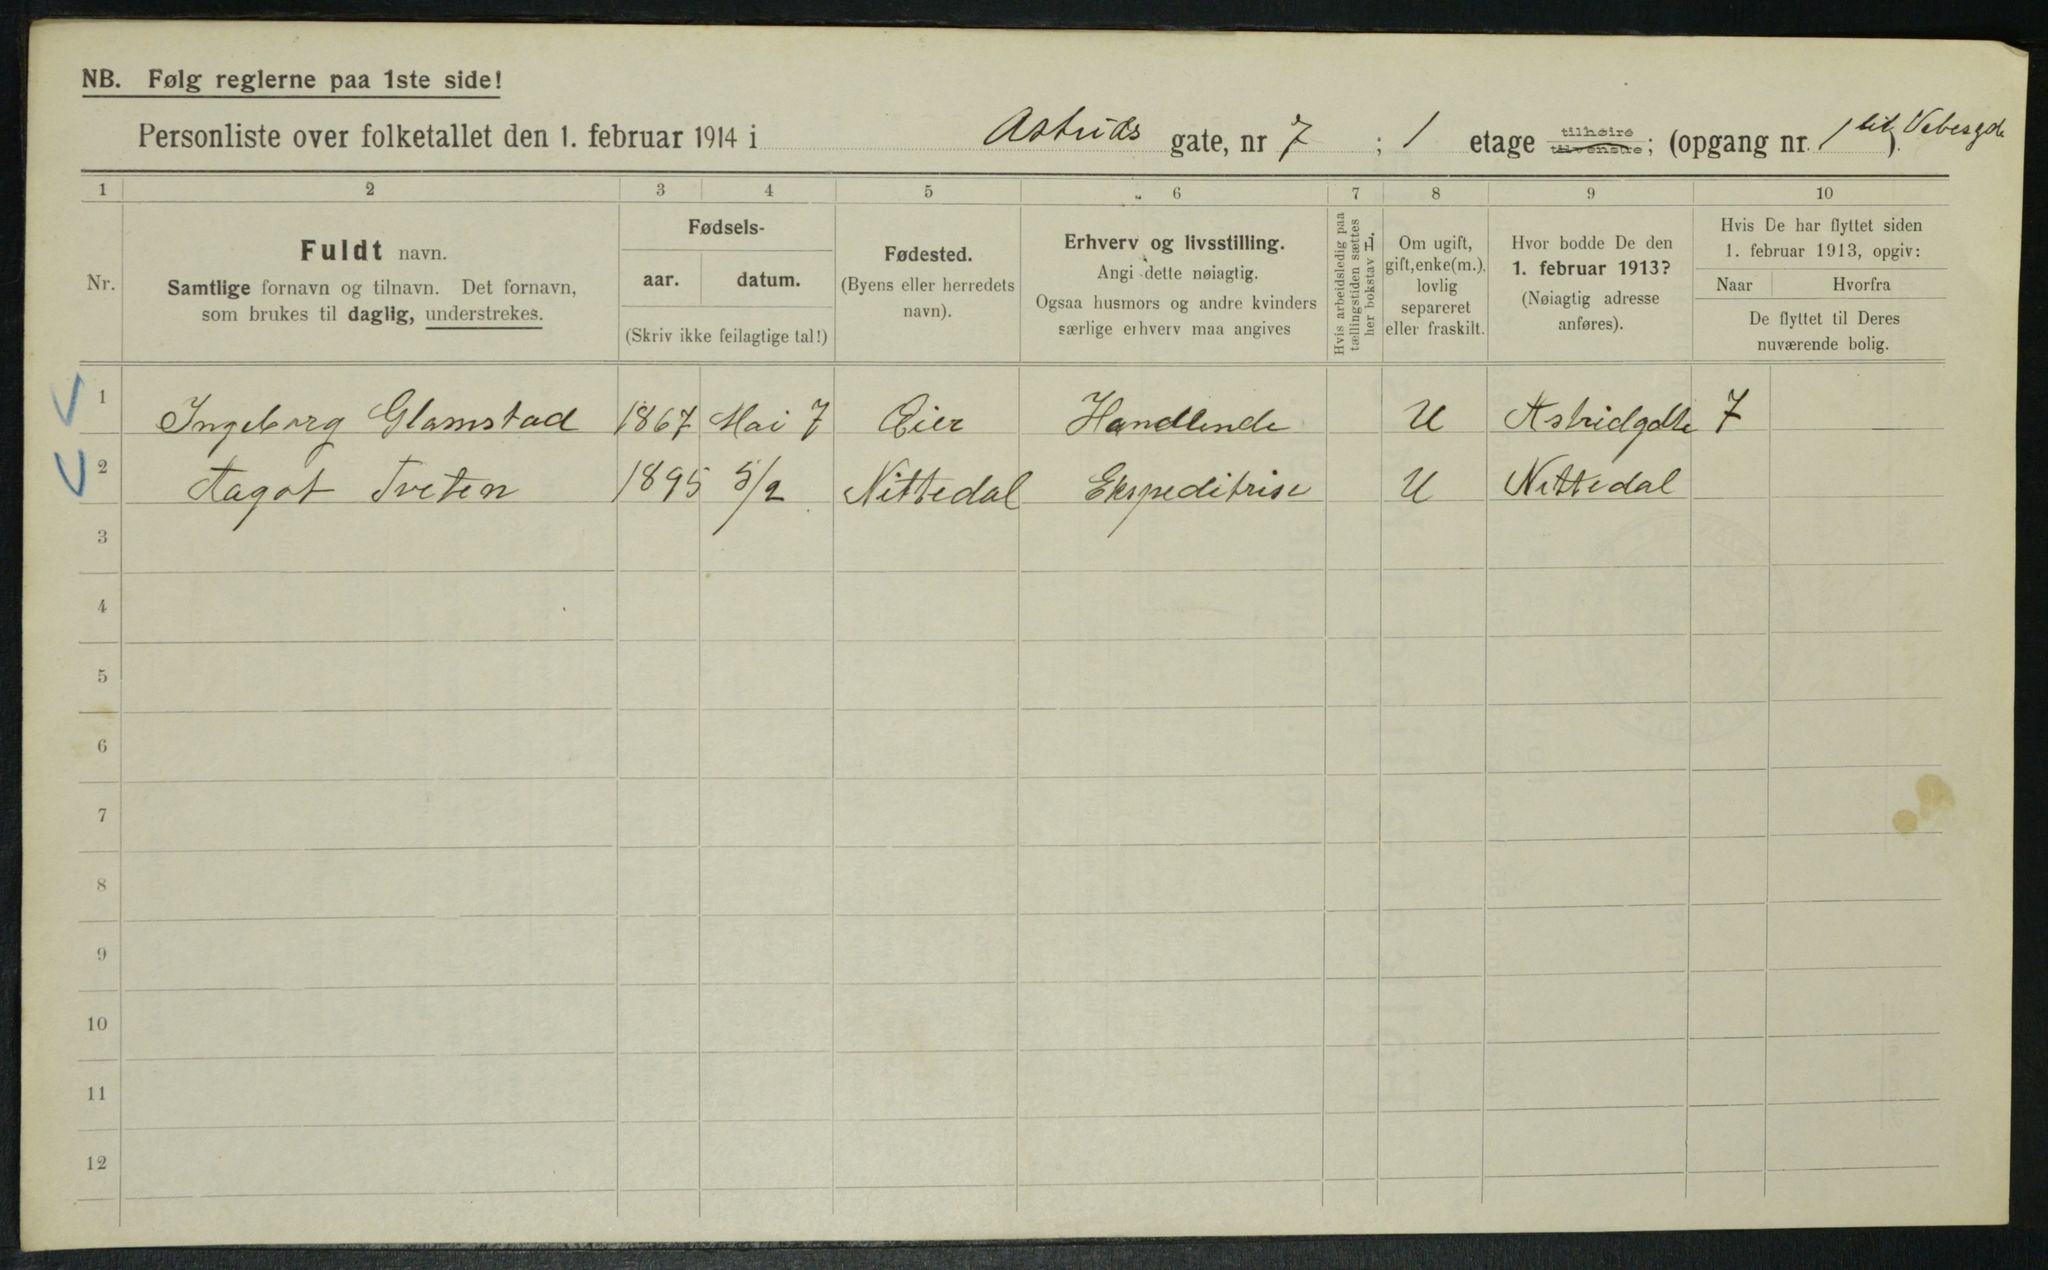 NB. Følg reglerne paa 1ste side!
Personliste over folketallet den 1. februar 1914 i Astrids gate, nr 7 ; 1 etage tilhøire tilvenstre; (opgang nr. 1 til ).
1 2 3 4 5 6 7 8 9 10
Nr.
Fuldt navn.
Samtlige fornavn og tilnavn. Det fornavn,
som brukes til daglig, understrekes.
Fødsels-
aar. datum.
(Skriv ikke feilagtige tal!)
Fødested.
(Byens eller herredets
navn).
Erhverv og livsstilling.
Angi dette nøiagtig.
Ogsaa husmors og andre kvinders
særlige erhverv maa angives
Hvis arbeidsledig paa
tællingstiden sættes
her bokstav L.
Om ugift,
gift, enke(m.),
lovlig
separeret
eller fraskilt.
Hvor bodde De den
1. februar 1913?
(Nøiagtig adresse
anføres).
Hvis De har flyttet siden
1. februar 1913, opgiv:
Naar Hvorfra
De flyttet til Deres
nuværende bolig.
1 Ingeborg Glamstad 1867 Mai 7 Eier Handlende U Astridgdte 7
2 Aagot Tveten 1895 5/2 Nittedal Ekspeditrise U Nittedal
3
4
5
6
7
8
9
10
11
12